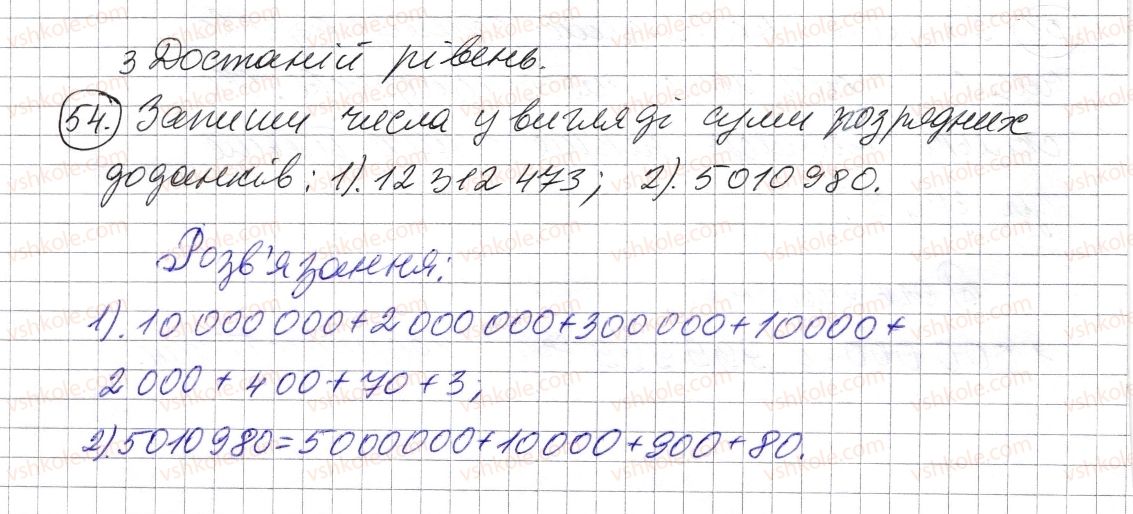 3 Достаній рівень.
54. Запиши числа у вигляді суми розрядних
доданків: 1). 12 312 473; 2). 5010980.
Розв'язання:
1). 10 000 000 + 2 000 000 + 300 000 + 10000 +
2 000 + 400 + 70 + 3;
2). 5010980 = 5000000 + 10000 + 900 + 80.